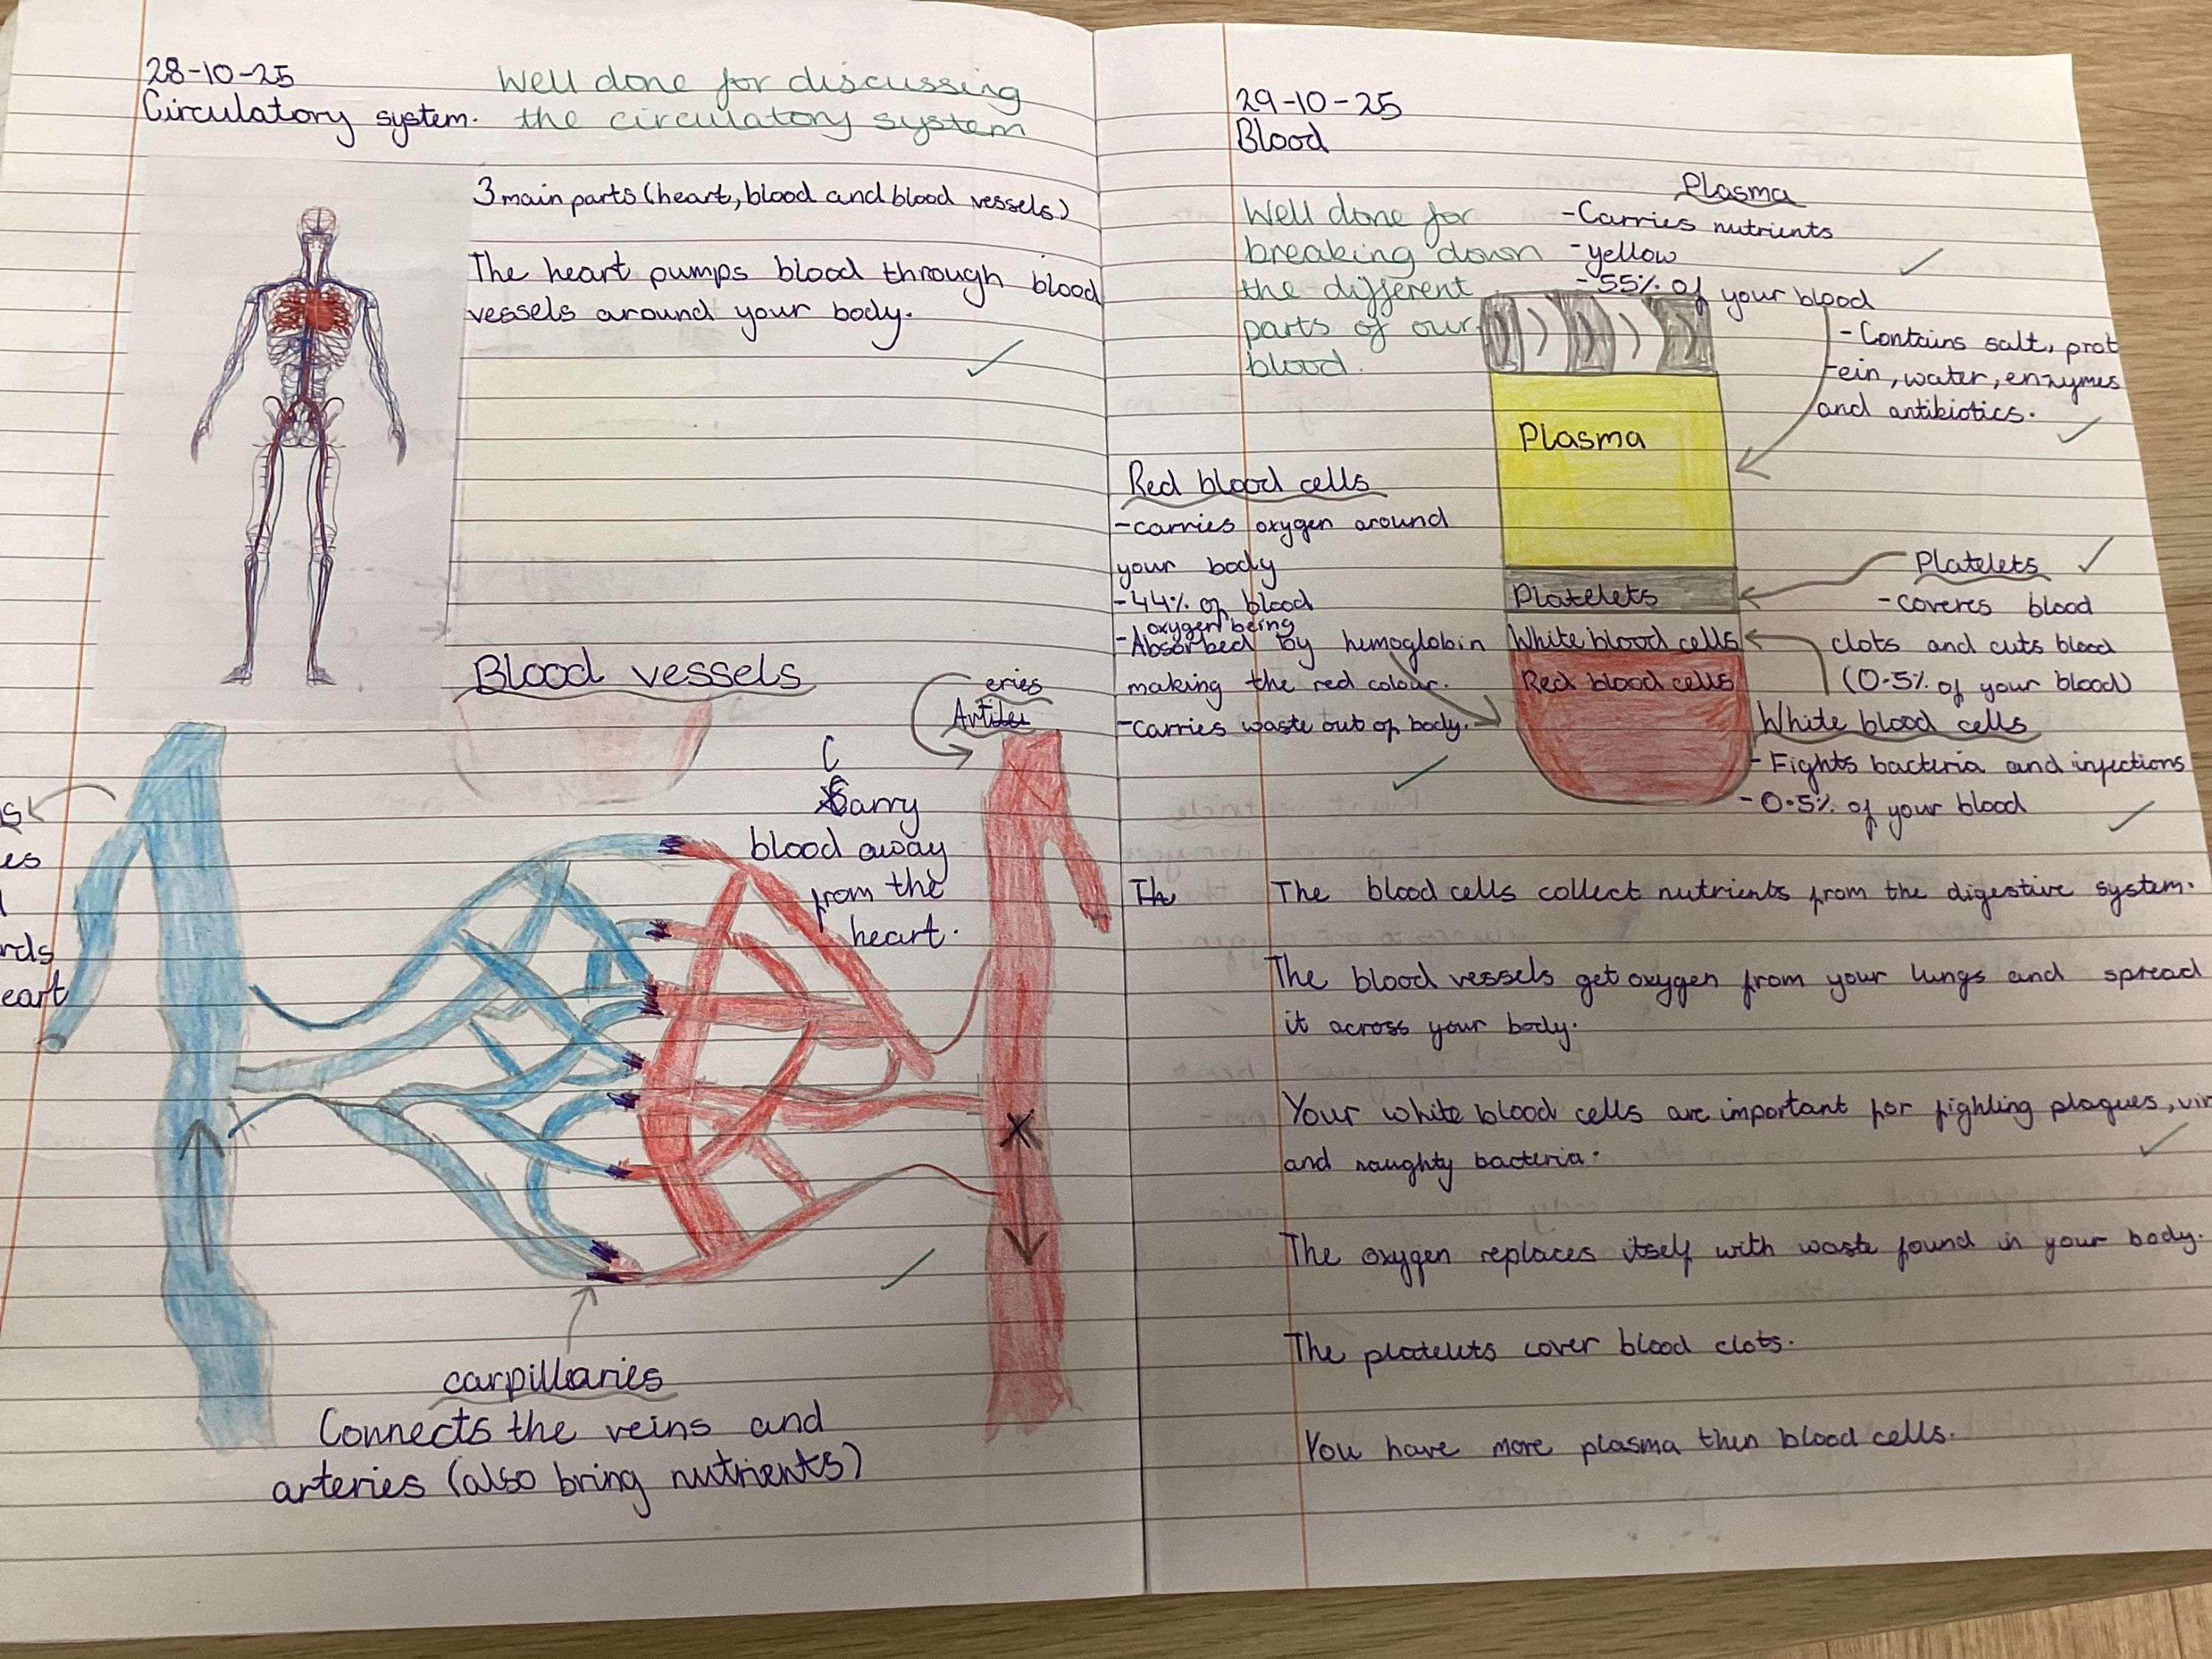 28-10-25
Circulatory system.
Well done for discussing
the circulatory system
3 main parts (heart, blood and blood vessels)
The heart pumps blood through blood
vessels around your body.
Blood vessels
eries
Arti
Carry
blood away
from the
heart.
es
rds
eart
carpillaries
Connects the veins and
arteries (also bring nutrients)
29-10-25
Blood
Well done for
breaking down
the different
parts of our
blood.
Plasma
-Carries nutrients
-yellow
-55% of your blood
-Contains salt, prot
-ein, water, enzymes
and antibiotics.
Plasma
Platelets
White blood cells
Red blood cells
Red blood cells
-carries oxygen around
your body
-44% of blood
oxygen being
-Absorbed by hemoglobin
making the red colour.
-Carries waste out of body.
Platelets
-coveres blood
clots and cuts blood
(0.5% of your blood)
White blood cells
-Fights bacteria and injections
-0.5% of your blood
Th The blood cells collect nutrients from the digestive system.
The blood vessels get oxygen from your lungs and spread
it across your body.
Your white blood cells are important for fighting plagues, vir
and naughty bacteria.
The oxygen replaces itself with waste found in your body.
The platelets cover blood clots.
You have more plasma then blood cells.